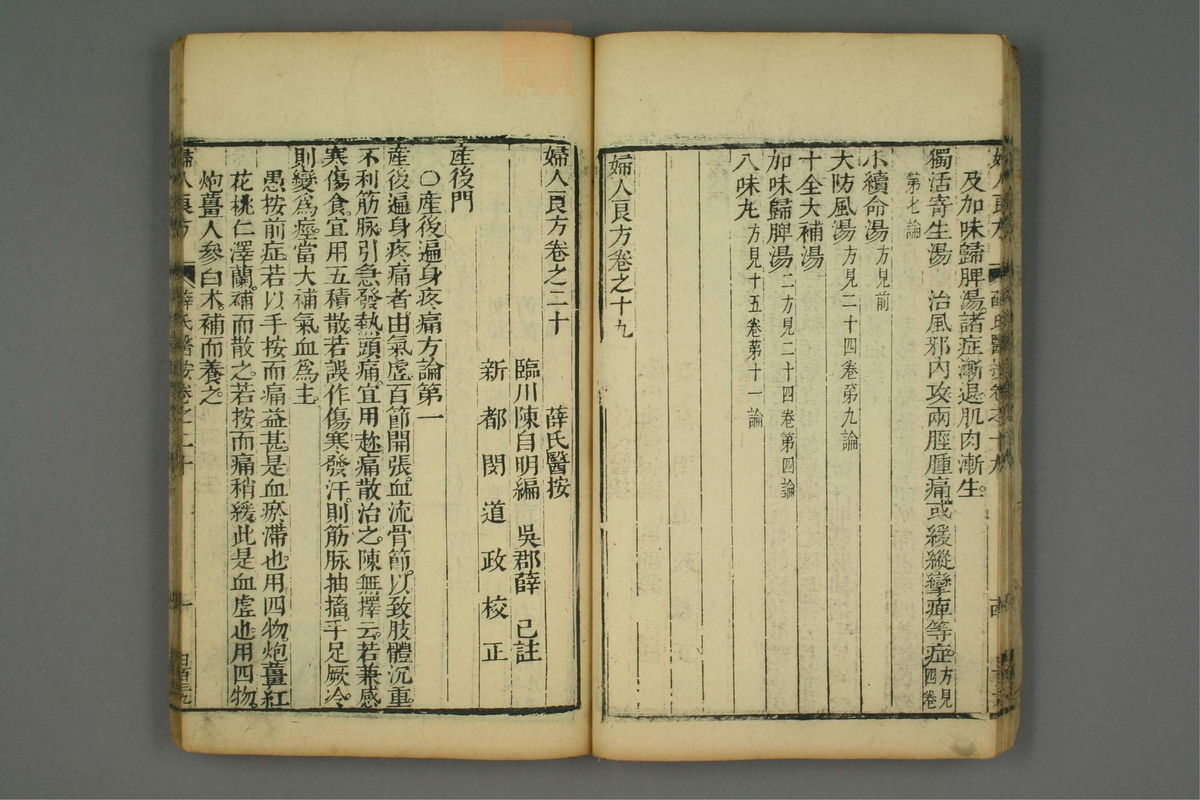 及加味歸脾湯諸症漸退肌肉漸生
獨活寄生湯　治風邪內攻兩脛腫痛或緩縱攣痺等症方見四卷
第七論
小續命湯方見前
大防風湯方見二十四卷第九論
十全大補湯
加味歸脾湯二方見二十四卷第四論
八味丸方見十五卷第十一論
婦人良方卷之十九
婦人良方卷之二十
薛氏醫按
臨川陳自明編　吳郡薛　己註
新都閔道政校正
產後門
○產後遍身疼痛方論第一
產後遍身疼痛者由氣虛百節開張血流骨節以致肢體沉重
不利筋脉引急發熱頭痛宜用趂痛散治之陳無擇云若兼感
寒傷食宜用五積散若誤作傷寒發汗則筋脉抽搐手足厥冷
則變為痙當大補氣血為主
愚按前症若以手按而痛益甚是血瘀滯也用四物炮薑紅
花桃仁澤蘭補而散之若按而痛稍緩此是血虛也用四物
炮薑人參白朮補而養之
婦人良方　薛氏醫按卷之二十　一